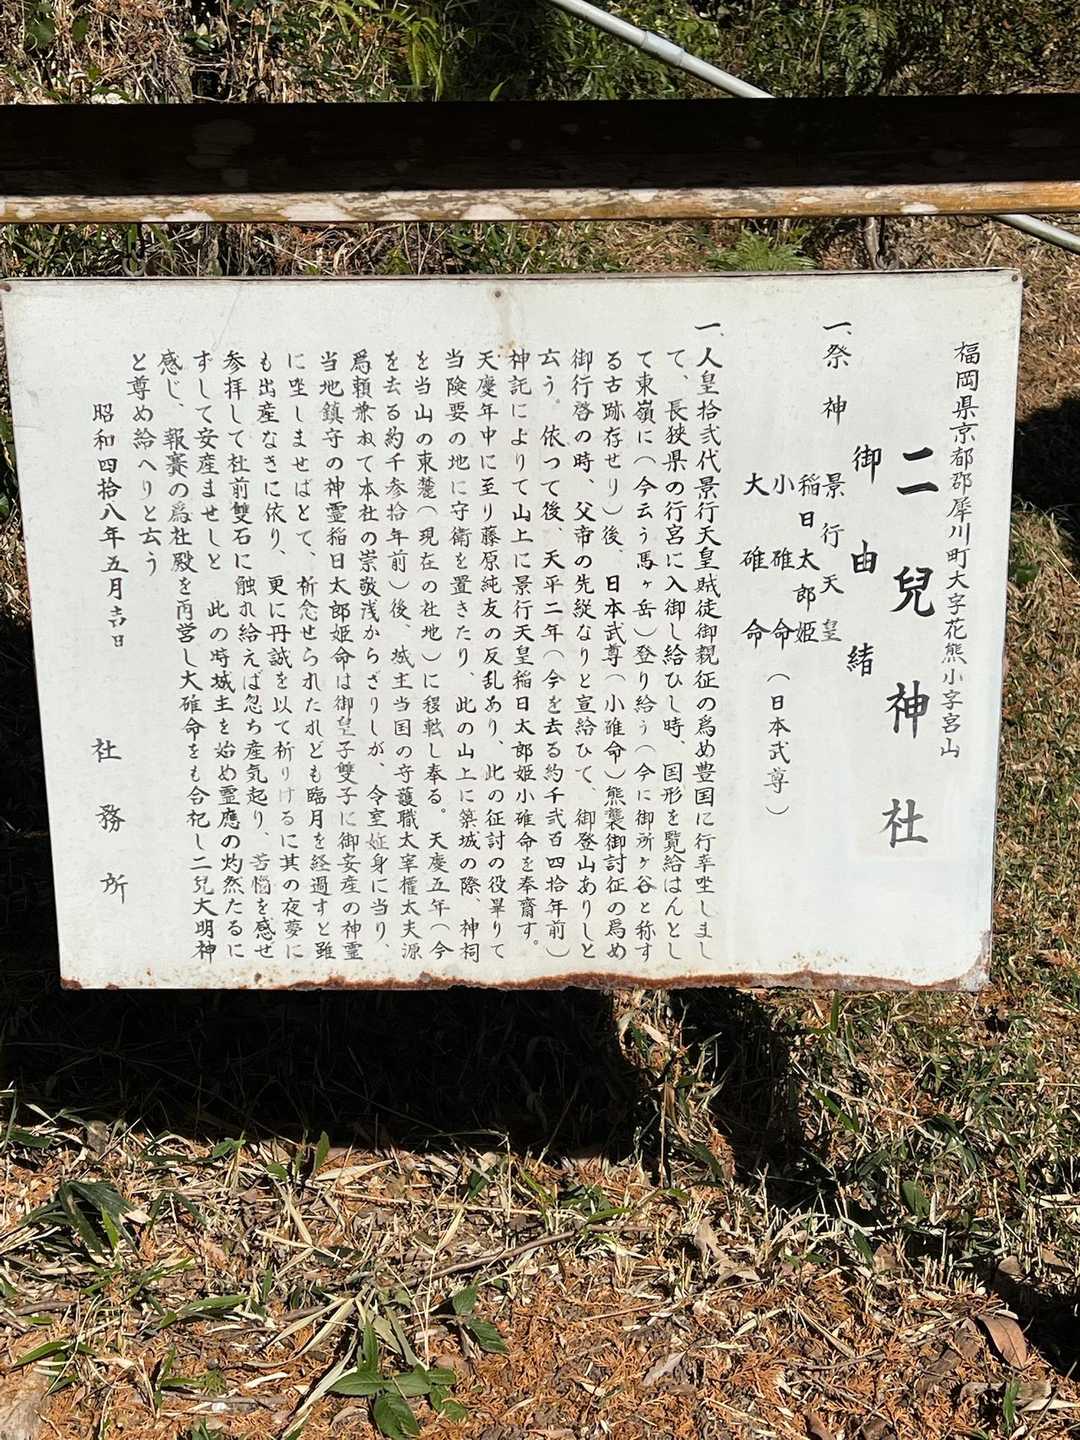 福岡県京都郡犀川町大字花熊小字宮山
二兒神社
御由緒
一、祭神 景行天皇
稲日太郎姫
小碓命(日本武尊)
大碓命
一、人皇拾弐代景行天皇賊徒御親征の爲め豊国に行幸坐しまし
て、長狭県の行宮に入御し給ひし時、国形を覧給はんとし
て東嶺に(今云う馬ヶ岳)登り給う(今に御所ヶ谷と称す
る古跡存せり)後、日本武尊(小碓命)熊襲御討征の爲め
御行啓の時、父帝の先縦なりと宣給ひて、御登山ありしと
云う。依つて後、天平二年(今を去る約千弐百四拾年前)
神託によりて山上に景行天皇稲日太郎姫小碓命を奉齋す。
天慶年中に至り藤原純友の反乱あり、此の征討の役畢りて
当険要の地に守衛を置きたり、此の山上に築城の際、神祠
を当山の東麓(現在の社地)に移転し奉る。天慶五年(今
を去る約千参拾年前)後、城主当国の守護職太宰権太夫源
爲頼兼ねて本社の崇敬浅からざりしが、令室姙身に当り、
当地鎮守の神霊稲日太郎姫命は御皇子雙子に御安産の神霊
に坐しませばとて、祈念せられたれども臨月を経過すと雖
も出産なきに依り、更に丹誠を以て祈りけるに其の夜夢に
参拝して社前雙石に触れ給えば忽ち産気起り、苦惱を感せ
ずして安産ませしと 此の時城主を始め霊應の灼然たるに
感じ、報賽の爲社殿を再営し大碓命をも合祀し二兒大明神
と尊め給へりと云う
昭和四拾八年五月吉日
社務所